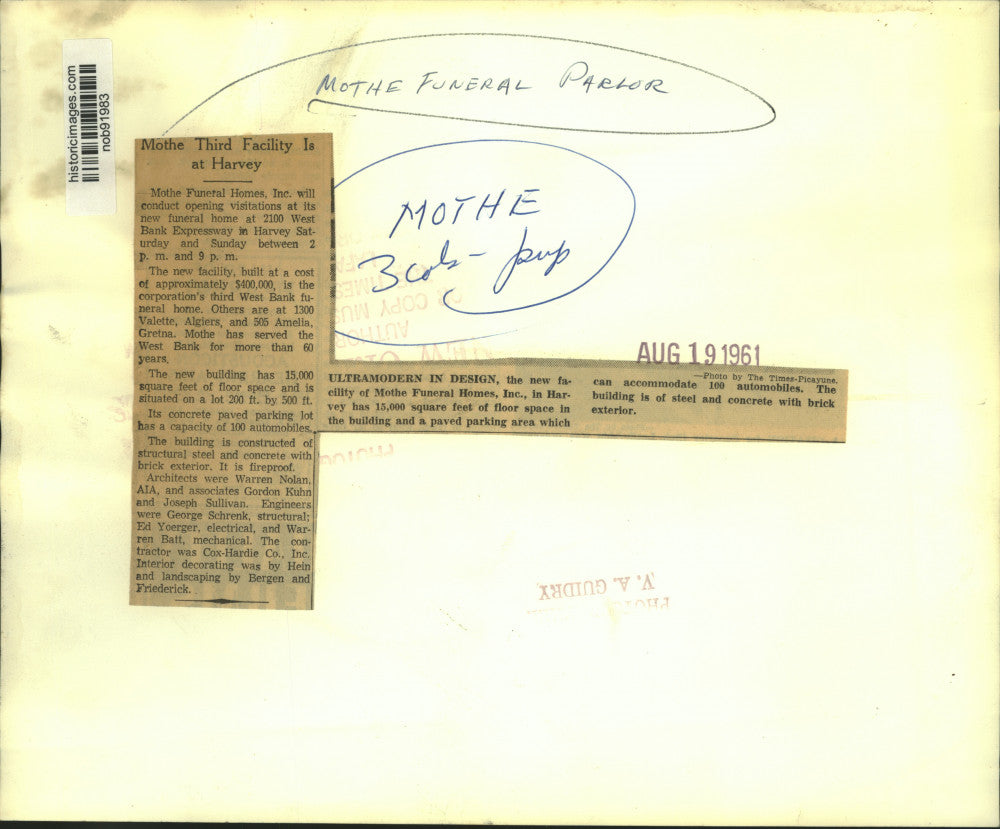 MOTHE FUNERAL PARLOR
historicimages.com
nob91983
Mothe Third Facility Is
at Harvey
Mothe Funeral Homes, Inc. will
conduct opening visitations at its
new funeral home at 2100 West
Bank Expressway in Harvey Sat-
urday and Sunday between 2
p. m. and 9 p. m.
The new facility, built at a cost
of approximately $400,000, is the
corporation's third West Bank fu-
neral home. Others are at 1300
Valette, Algiers, and 505 Amelia,
Gretna. Mothe has served the
West Bank for more than 60
years.
The new building has 15,000
square feet of floor space and is
situated on a lot 200 ft. by 500 ft.
Its concrete paved parking lot
has a capacity of 100 automobiles.
The building is constructed of
structural steel and concrete with
brick exterior. It is fireproof.
Architects were Warren Nolan,
AIA, and associates Gordon Kuhn
and Joseph Sullivan. Engineers
were George Schrenk, structural;
Ed Yoerger, electrical, and War-
ren Batt, mechanical. The con-
tractor was Cox-Hardie Co., Inc.
Interior decorating was by Hein
and landscaping by Bergen and
Friederick.
MOTHE
3 cols -
AUG 19 1961
—Photo by The Times-Picayune.
ULTRAMODERN IN DESIGN, the new fa-
cility of Mothe Funeral Homes, Inc., in Har-
vey has 15,000 square feet of floor space in
the building and a paved parking area which
can accommodate 100 automobiles. The
building is of steel and concrete with brick
exterior.
V. A. GUIDRY